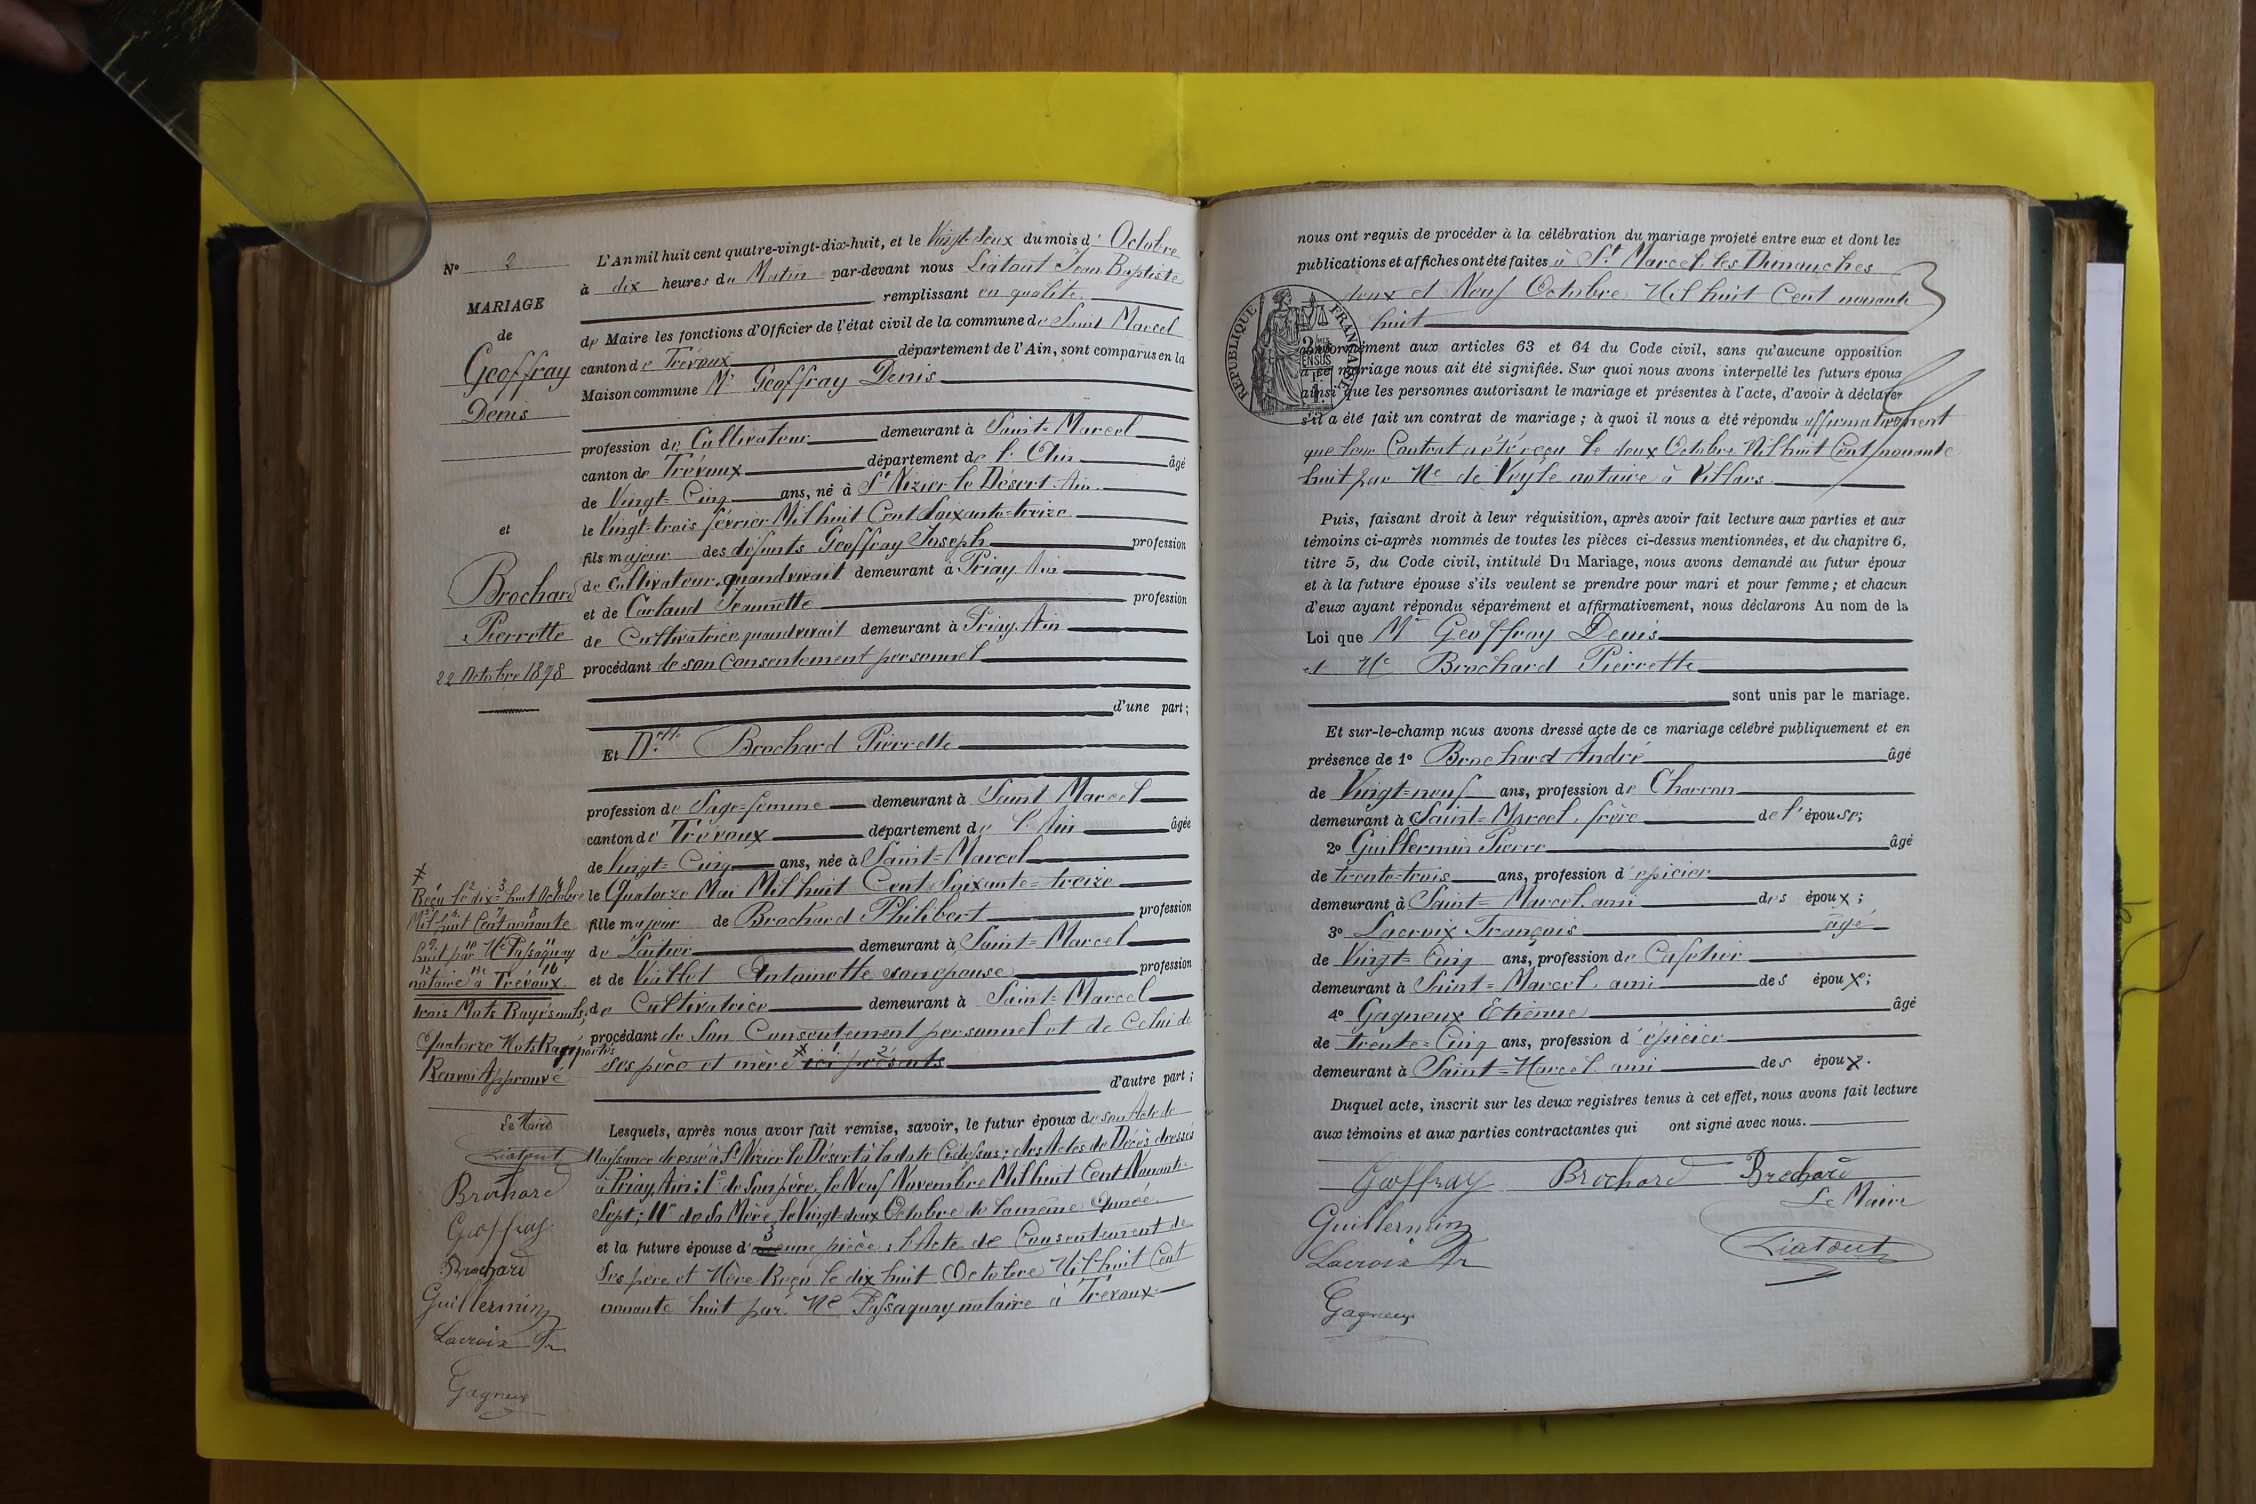 N° 2
MARIAGE
de
Geoffray
Denis
et
Brochard
Pierrette
22 Octobre 1898
L'An mil huit cent quatre-vingt-dix-huit, et le Vingt-deux du mois d' Octobre
à dix heures du Matin par-devant nous Liatout Jean Baptiste
remplissant en qualité
de Maire les fonctions d'Officier de l'état civil de la commune de Saint Marcel
canton de Trévoux département de l'Ain, sont comparus en la
Maison commune Mr Geoffray Denis
profession de Cultivateur demeurant à Saint=Marcel
canton de Trévoux département de l'Ain âgé
de Vingt=Cinq ans, né à St Nizier le Désert Ain
le Vingt=trois février Mil huit Cent Soixante=treize
fils majeur des défunts Geoffray Joseph profession
de Cultivateur quand vivait demeurant à Priay Ain
et de Cartaud Jeannette profession
de Cultivatrice quand vivait demeurant à Priay Ain
procédant de son Consentement personnel
d'une part;
Et Delle Brochard Pierrette
profession de Sage=femme demeurant à Saint Marcel
canton de Trévoux département de l'Ain âgée
de Vingt=Cinq ans, née à Saint=Marcel
le Quatorze Mai Mil huit Cent Soixante=treize
fille majeur de Brochard Philibert profession
de Laitier demeurant à Saint=Marcel
et de Viallet Antoinette son épouse profession
de Cultivatrice demeurant à Saint=Marcel
procédant de Son Consentement personnel et de Celui de
ses père et mère ici présents
d'autre part;
Lesquels, après nous avoir fait remise, savoir, le futur époux de son Acte de
Naissance dressé à St Nizier le Désert à la date Ci-dessus; des Actes de Décès dressés
à Priay, Ain: 1° de Son père, le Neuf Novembre Mil huit Cent Nonante=
Sept; II° de Sa Mère, le Vingt=deux Octobre de la même Année
et la future épouse d'une pièce: l'Acte de Consentement de
Ses père et Mère Reçu le dix huit Octobre Mil huit Cent
nonante huit par Me Passaquay notaire à Trévoux
Reçu le dix=huit Octobre
Mil huit Cent nonante
huit par Me Passaquay
notaire à Trévoux
trois Mots Rayés nuls;
Quatorze Mots Rapportés
Renvoi Approuvé
Le Maire
Liatout
Brochard
Geoffray
Brochard
Guillermin
Lacroix Fr
Gagneux
nous ont requis de procéder à la célébration du mariage projeté entre eux et dont les
publications et affiches ont été faites à St Marcel les Dimanches
deux et Neuf Octobre Mil huit Cent nonante
huit
RÉPUBLIQUE FRANÇAISE
conformément aux articles 63 et 64 du Code civil, sans qu'aucune opposition
à ce mariage nous ait été signifiée. Sur quoi nous avons interpellé les futurs époux
ainsi que les personnes autorisant le mariage et présentes à l'acte, d'avoir à déclarer
s'il a été fait un contrat de mariage; à quoi il nous a été répondu affirmativement
que leur Contrat a été reçu le deux Octobre Mil huit Cent nonante
huit par Me de Veyle notaire à Villars
Puis, faisant droit à leur réquisition, après avoir fait lecture aux parties et aux
témoins ci-après nommés de toutes les pièces ci-dessus mentionnées, et du chapitre 6,
titre 5, du Code civil, intitulé Du Mariage, nous avons demandé au futur époux
et à la future épouse s'ils veulent se prendre pour mari et pour femme; et chacun
d'eux ayant répondu séparément et affirmativement, nous déclarons Au nom de la
Loi que Mr Geoffray Denis
et Me Brochard Pierrette
sont unis par le mariage.
Et sur-le-champ nous avons dressé acte de ce mariage célébré publiquement et en
présence de 1° Brochard André âgé
de Vingt=neuf ans, profession de Charron
demeurant à Saint=Marcel, frère de l'épouse;
2° Guillermin Pierre âgé
de trente=trois ans, profession d'épicier
demeurant à Saint=Marcel, ami des époux;
3° Lacroix François âgé
de Vingt=Cinq ans, profession de Cafetier
demeurant à Saint=Marcel, ami des époux;
4° Gagneux Etienne âgé
de trente=Cinq ans, profession d'épicier
demeurant à Saint=Marcel, ami des époux.
Duquel acte, inscrit sur les deux registres tenus à cet effet, nous avons fait lecture
aux témoins et aux parties contractantes qui ont signé avec nous.
Geoffray Brochard Brochard
Le Maire
Guillermin
Liatout
Lacroix Fr
Gagneux